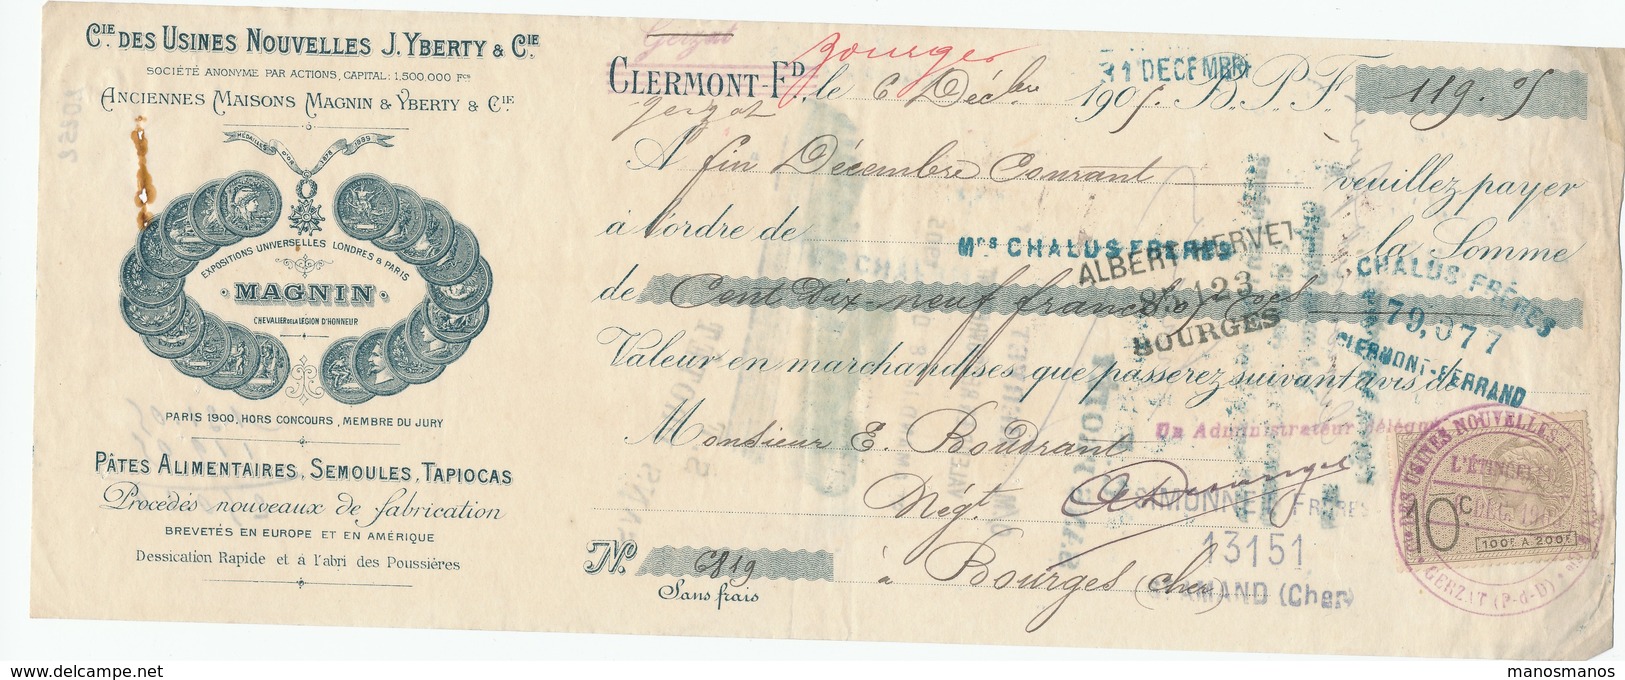 CIE DES USINES NOUVELLES J. YBERTY & CIE
SOCIÉTÉ ANONYME PAR ACTIONS, CAPITAL: 1.500.000 Fcs
ANCIENNES MAISONS MAGNIN & YBERTY & CIE
MÉDAILLES D'OR 1878 1889
EXPOSITIONS UNIVERSELLES LONDRES & PARIS
MAGNIN
CHEVALIER DE LA LÉGION D'HONNEUR
PARIS 1900, HORS CONCOURS, MEMBRE DU JURY
PÂTES ALIMENTAIRES, SEMOULES, TAPIOCAS
Procédés nouveaux de fabrication
BREVETÉS EN EUROPE ET EN AMÉRIQUE
Dessication Rapide et à l'abri des Poussières
Gerzat
Bourges
31 DECEMBRE
CLERMONT-FD, le 6 Décbre 1905. B.P.F. 119.05
Gerzat
A fin Décembre Courant veuillez payer
à l'ordre de Mrs CHALUS FRERES la Somme
de Cent Dix-neuf francs 05 cs
ALBERT HERVET
85,123
BOURGES
CHALUS FRÈRES
79,077
CLERMONT-FERRAND
Valeur en marchandises que passerez suivant avis de
Monsieur E. Boudrant
Un Administrateur délégué
Négt
SIMONNET FRÈRES
13151
ST AMAND (Cher)
No. 6819
Sans frais
à Bourges (cher)
USINES NOUVELLES
L'ÉTINCELLE
DEC. 190
GERZAT (P-d-D)
10c
100F A 200F
manosmanos